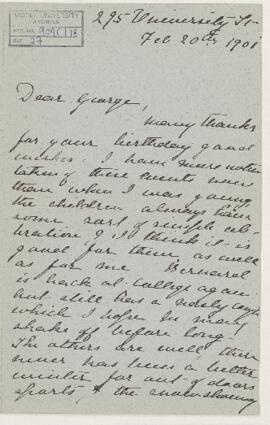 McGILL UNIVERSITY
ARCHIVES
ACC. NO. 909C/18
REF. 27
295 University St-
Feb 20th, 1901
Dear George,
Many thanks
for your birthday good
wishes. I have more
of these events now
than when I was young
the children always have
some sort of simple cele-
bration & I think it is
good for them, as well
as for me Bernard
is back at college again
but still has a nasty cough
which I hope he may
shake off before long.
The others are well, there
never has been a better
winter for out-of-doors
sports, & the snow-shoeing